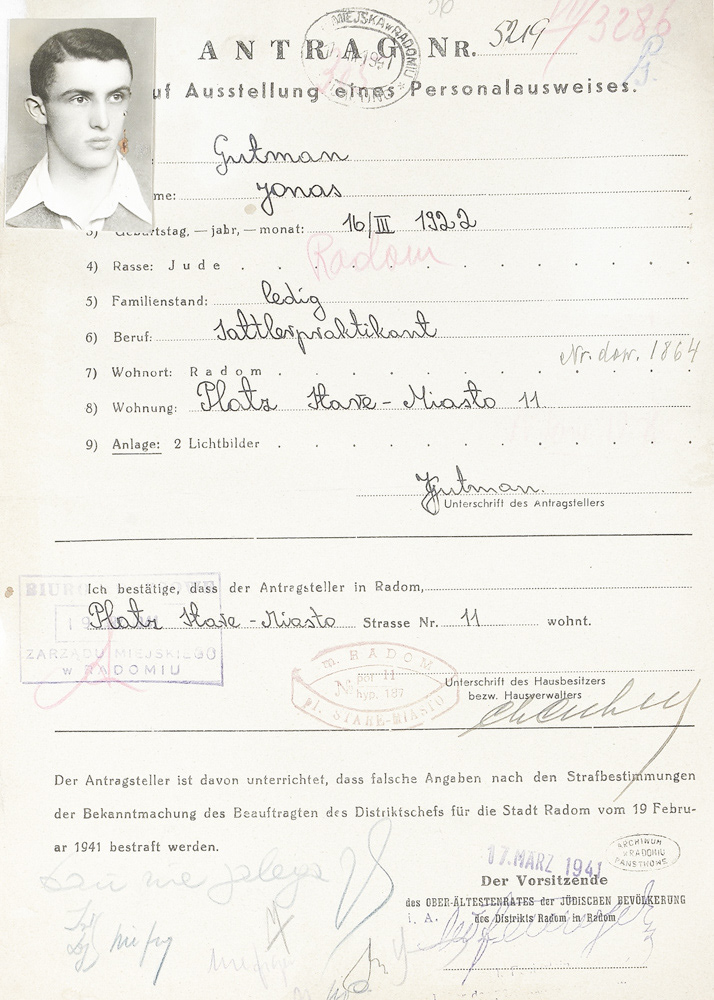 ANTRAG NR. 5219
VIII/3286
uf Ausstellung eines Personalausweises.
Gutman
me: Jonas
3) Geburtstag, — jahr, — monat: 16/III 1922
Radom
4) Rasse: Jude
5) Familienstand: ledig
6) Beruf: Sattlerpraktikant
Nr. dow. 1864
7) Wohnort: Radom
8) Wohnung: Platz Stare-Miasto 11
9) Anlage: 2 Lichtbilder
JGutman.
Unterschrift des Antragstellers
Ich bestätige, dass der Antragsteller in Radom,
Platz Stare-Miasto Strasse Nr. 11 wohnt.
ZARZĄDU MIEJSKIEGO
w RADOMIU
m. RADOM
№ por. 11
hyp. 187
pl. STARE-MIASTO
Unterschrift des Hausbesitzers
bezw. Hausverwalters
Der Antragsteller ist davon unterrichtet, dass falsche Angaben nach den Strafbestimmungen
der Bekanntmachung des Beauftragten des Distriktschefs für die Stadt Radom vom 19 Febru-
ar 1941 bestraft werden.
17. MÄRZ 1941
ARCHIWUM
w RADOMIU
PAŃSTWOWE
Der Vorsitzende
des OBER-ÄLTESTENRATES der JÜDISCHEN BEVÖLKERUNG
i. A. des Distrikts Radom in Radom